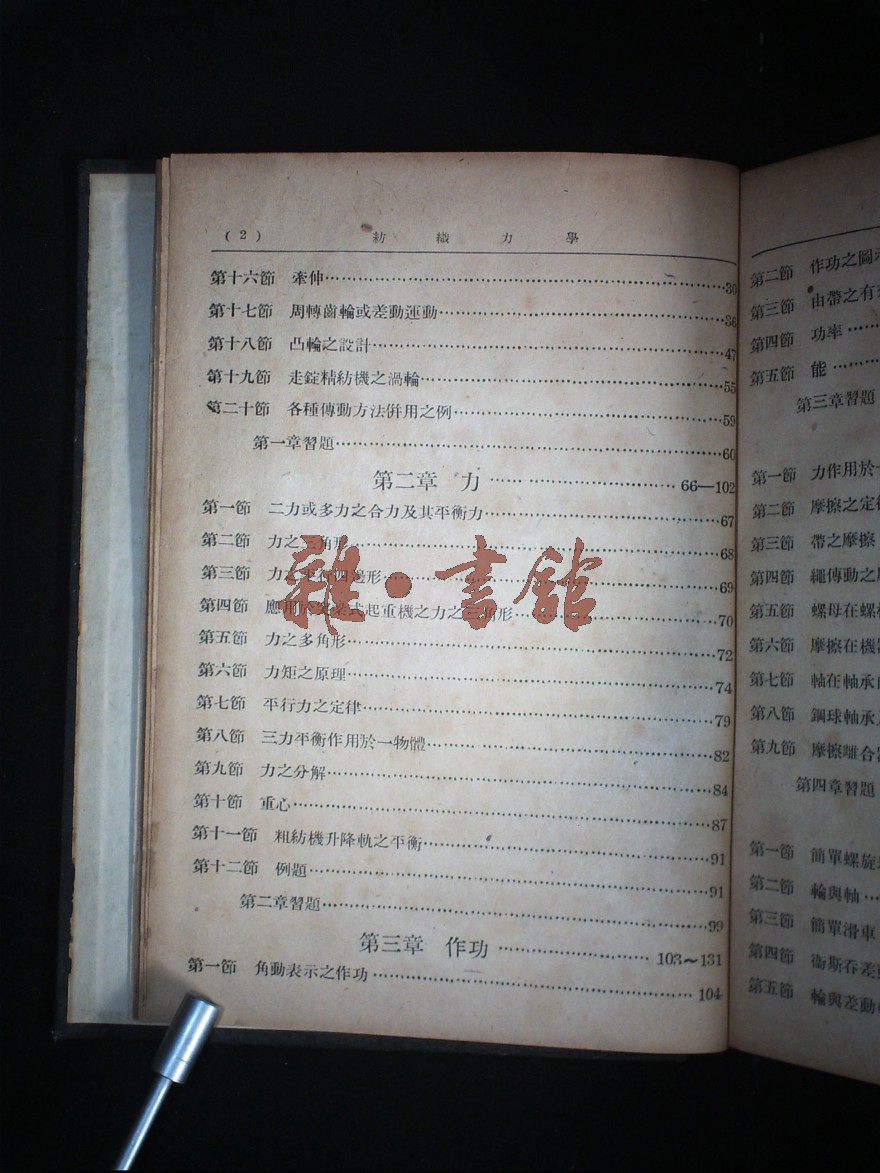 (2) 紡織力學
第十六節 牽伸……30
第十七節 周轉齒輪或差動運動……36
第十八節 凸輪之設計……47
第十九節 走錠精紡機之渦輪……55
第二十節 各種傳動方法併用之例……59
第一章習題……60
第二章 力……66—102
第一節 二力或多力之合力及其平衡力……67
第二節 力之三角形……68
第三節 力之平行四邊形……69
第四節 應用於突梁式起重機之力之三角形……70
第五節 力之多角形……72
第六節 力矩之原理……74
第七節 平行力之定律……79
第八節 三力平衡作用於一物體……82
第九節 力之分解……84
第十節 重心……87
第十一節 粗紡機升降軌之平衡……91
第十二節 例題……91
第二章習題……99
第三章 作功……103～131
第一節 角動表示之作功……104
雜·書館
第二節 作功之圖
第三節 由帶之有
第四節 功率……
第五節 能……
第三章習題
第一節 力作用於
第二節 摩擦之定
第三節 帶之摩擦
第四節 繩傳動之
第五節 螺母在螺
第六節 摩擦在機
第七節 軸在軸承
第八節 鋼球軸承
第九節 摩擦離合
第四章習題
第一節 簡單螺旋
第二節 輪與軸…
第三節 簡單滑車
第四節 衛斯吞差
第五節 輪與差動